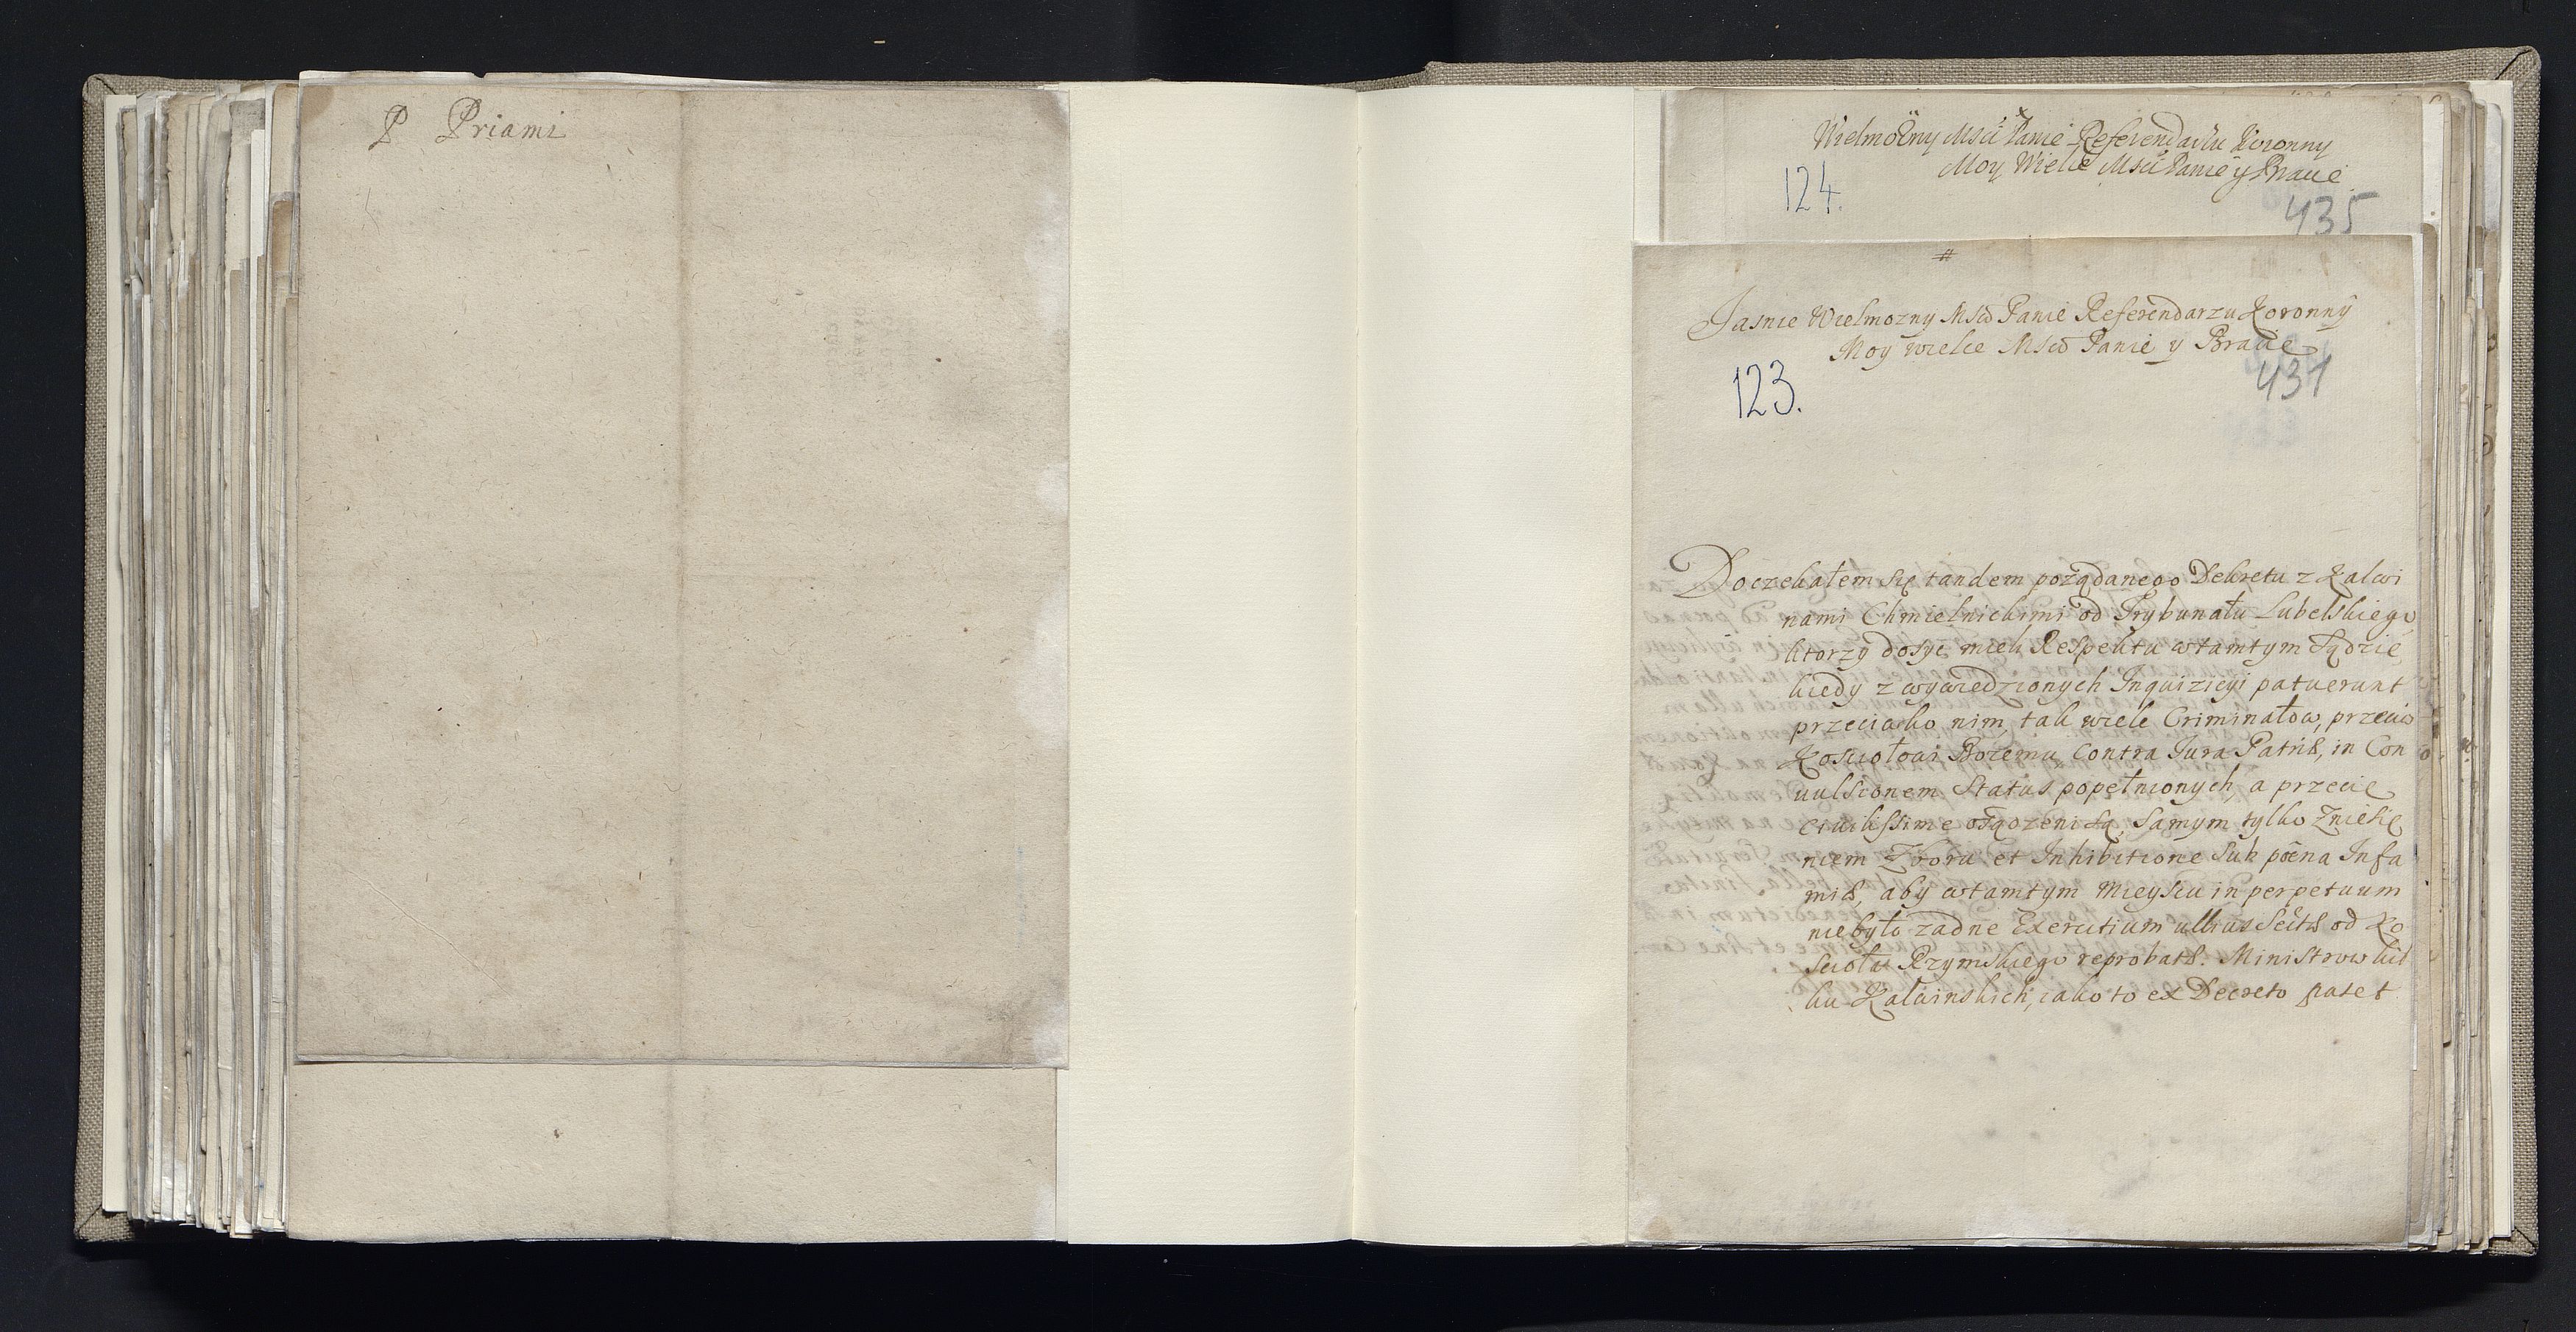 P Priami
Wielmożny Mści Panie Referendarzu Koronny
Moy Wielce Mści Panie y Bracie
124.
435
#
Jasnie Wielmozny Mscō Panie Referendarzu Koronny
Moy wielce Mscō Panie y Bracie
123.
431
Doczekałem się tandem poząndanego Dekretu z Kalwi
nami Chmielnickimi od Trybunału Lubelskiego
ktorzy dosyc mieli Respektu w tamtym Sądzie
kiedy z wywiedzionych Inquizicyi patuerunt
przeciwko nim, tak wiele Criminałow, przeciw
Kosciołowi Bozemu contra Jura Patriæ, in Con
uulsionem Status popełnionych, a przecie
ciuilissime osądzeni są, samym tylko Zniesie
niem Zboru, et Inhibitione sub pœna Infa
miæ, aby w tamtym mieyscu in perpetuum
nie było zadne Exercitium ullius Sectæ od Ko
scioła Rzymskiego reprobatæ. Ministrow kil
ku Kalwinskich, iako to ex Decreto patet